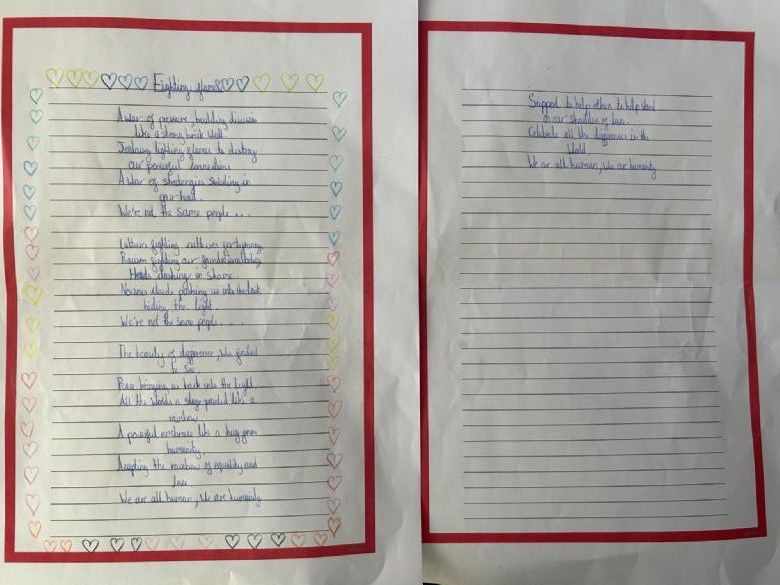 Fighting flames
A war of pressure, building division
like a strong brick wall.
Jealousy lighting flames to destroy
our powerful connections
A war of strategies building in
our head.
We're not the same people...
Culture fighting cultures for
Racism fighting our foundational
Heads in shame.
clouds pushing us into the dark
hiding the light
We're not the same people...
The beauty of difference, We failed
to see.
Peace bringing us back into the light.
All the worlds a stage painted like a
rainbow.
A powerful embrace like a hug from
humanity.
Accepting the rainbow of equality and
love
We are all human, We are humanity
Support to help others to help stand
on our shoulders of love.
Celebrate all the differences in the
World.
We are all human, We are humanity